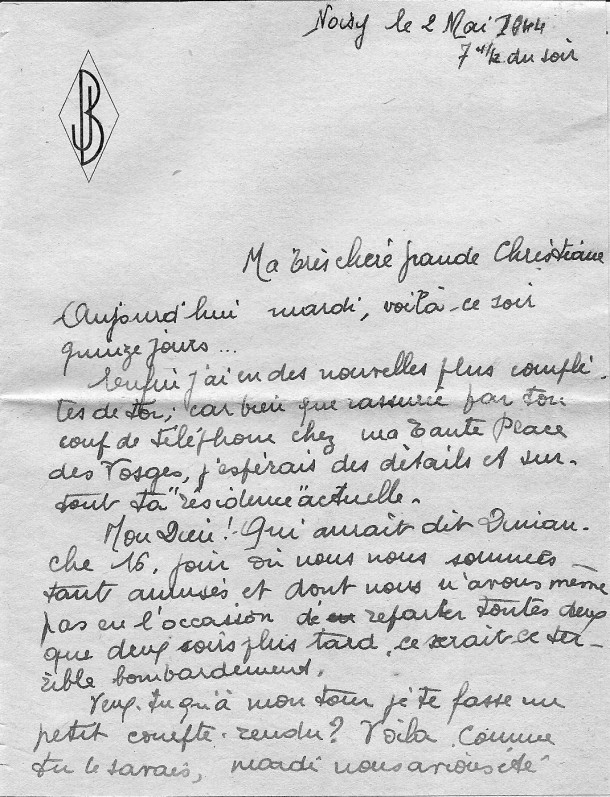 Noisy le 2 Mai 1944
7 h 1/2 du soir
JB
Ma très chère grande Christiane
Aujourd'hui mardi, voilà ce soir
quinze jours...
Enfin j'ai eu des nouvelles plus complè-
tes de toi; car bien que rassurée par ton
coup de téléphone chez ma Tante Place
des Vosges, j'espérais des détails et sur-
tout ta "résidence" actuelle.
Mon Dieu! Qui aurait dit Diman-
che 16, jour où nous nous sommes
tant amusés et dont nous n'avons même
pas eu l'occasion de reparler toutes deux
que deux soirs plus tard, ce serait ce ter-
rible bombardement.
Veux-tu qu'à mon tour je te fasse un
petit compte-rendu? Voilà. Comme
tu le savais, mardi nous avions été